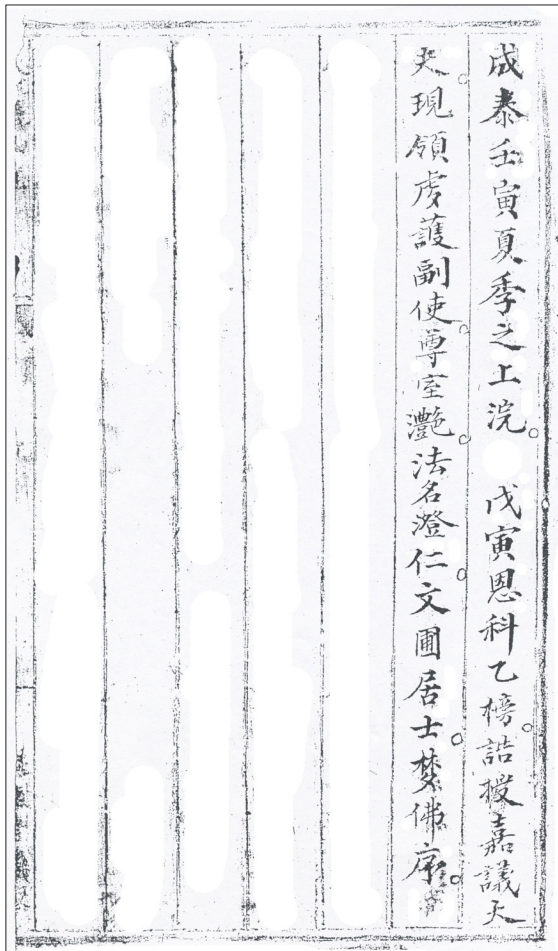 成泰壬寅夏季之上浣。戊寅恩科乙榜。誥授嘉議大
夫。現領虔護副使。尊室灧。法名澄仁。文圃居士。梦佛序。